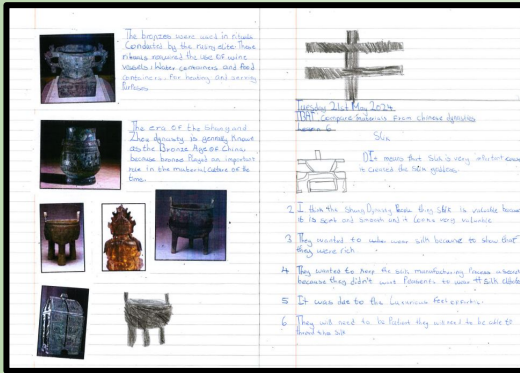 The bronzes were used in rituals
Conducted by the ruling elite. These
rituals required the use of wine
vessels, water containers and food
containers. For heating and serving
Purposes.
The era of the Shang and
Zhou dynasty is generly Known
as the Bronze Age of China,
because bronze Playd an important
rule in the material Culture of the
time.
Tuesday 21st May 2024
TBAT: Compare materials From chinese dynasties
Lesson 6
Silk
It means that Silk is very
it created the Silk goddess.
2 I think the Shang Dynasty think they silk is valuable because
it is soft and smooth and it looks very valuable
3 They wanted to wear silk because to show that
they were rich
4 They wanted to keep the silk manufacturing Process a secret
because they didn't want Peasents to wear silk
5 It was due to the Luxurious feel
6 They will need to be Patient they will need to be able to
thred the Silk